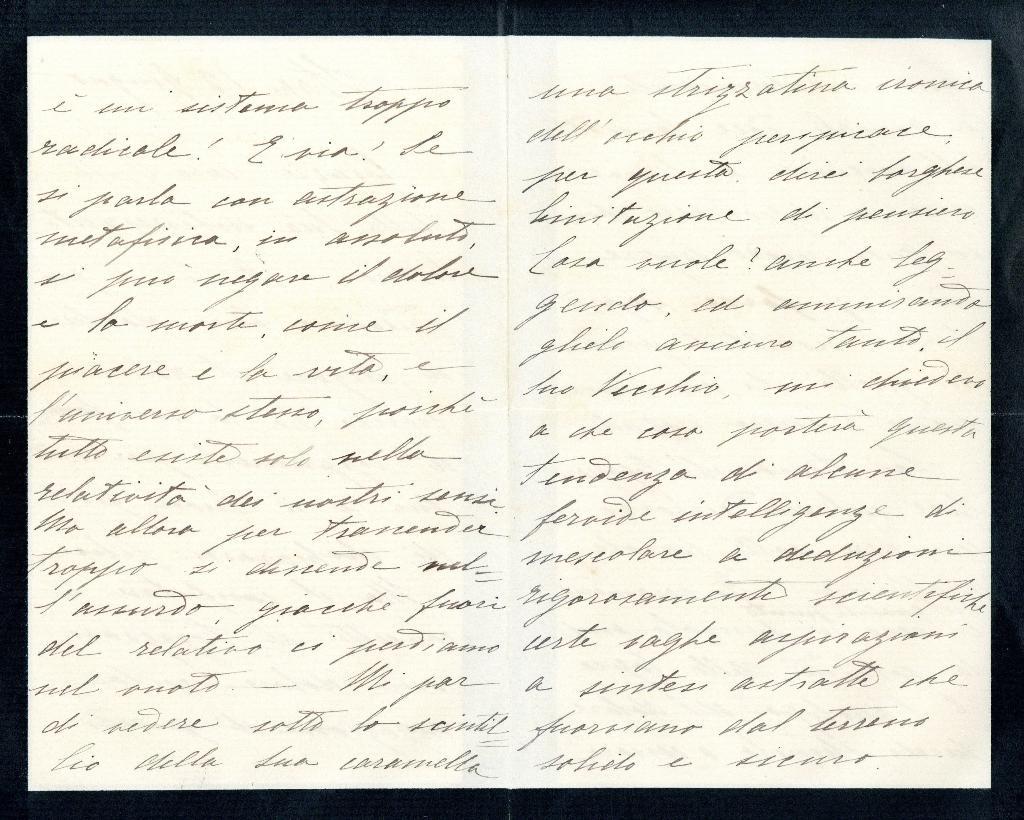 è un sistema troppo
radicale! E via! Se
si parla con astrazione
metafisica, in assoluto,
si può negare il dolore
e la morte, come il
piacere e la vita, e
l'universo stesso, poichè
tutto esiste solo nella
relatività dei nostri sensi.
Ma allora per trascender
troppo si discende nel=
l'assurdo, giacchè fuori
del relativo ci perdiamo
nel vuoto. — Mi par
di vedere sotto lo scintil=
lio della sua caramella
una strizzatina ironica
dell'occhio perspicace,
per questa direi borghese
limitazione di pensiero
Cosa vuole? anche leg=
gendo, ed ammirando
glielo assicuro tanto, il
suo Vecchio, mi chiedevo
a che cosa porterà questa
tendenza di alcune
fervide intelligenze di
mescolare a deduzioni
rigorosamente scientifiche
certe vaghe aspirazioni
a sintesi astratte che
fuorviano dal terreno
solido e sicuro.